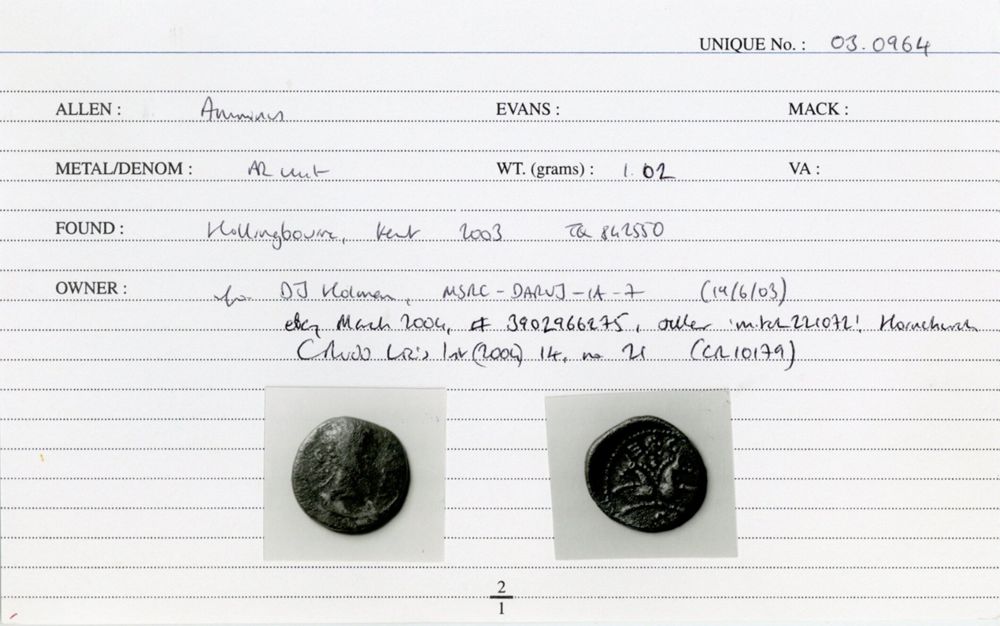 UNIQUE No. : 03.0964
ALLEN : Amminus EVANS : MACK :
METAL/DENOM : AR unit WT. (grams) : 1.02 VA :
FOUND : Hollingbourne, Kent 2003 TQ 842550
OWNER : DJ Holman, MSRC-DARVJ-IA-7 (19/6/03)
ebay March 2004, # 3902966275, seller 'mitch221072', Hornchurch
Chris List (2004) 14, no 21 (CR10179)
2
1